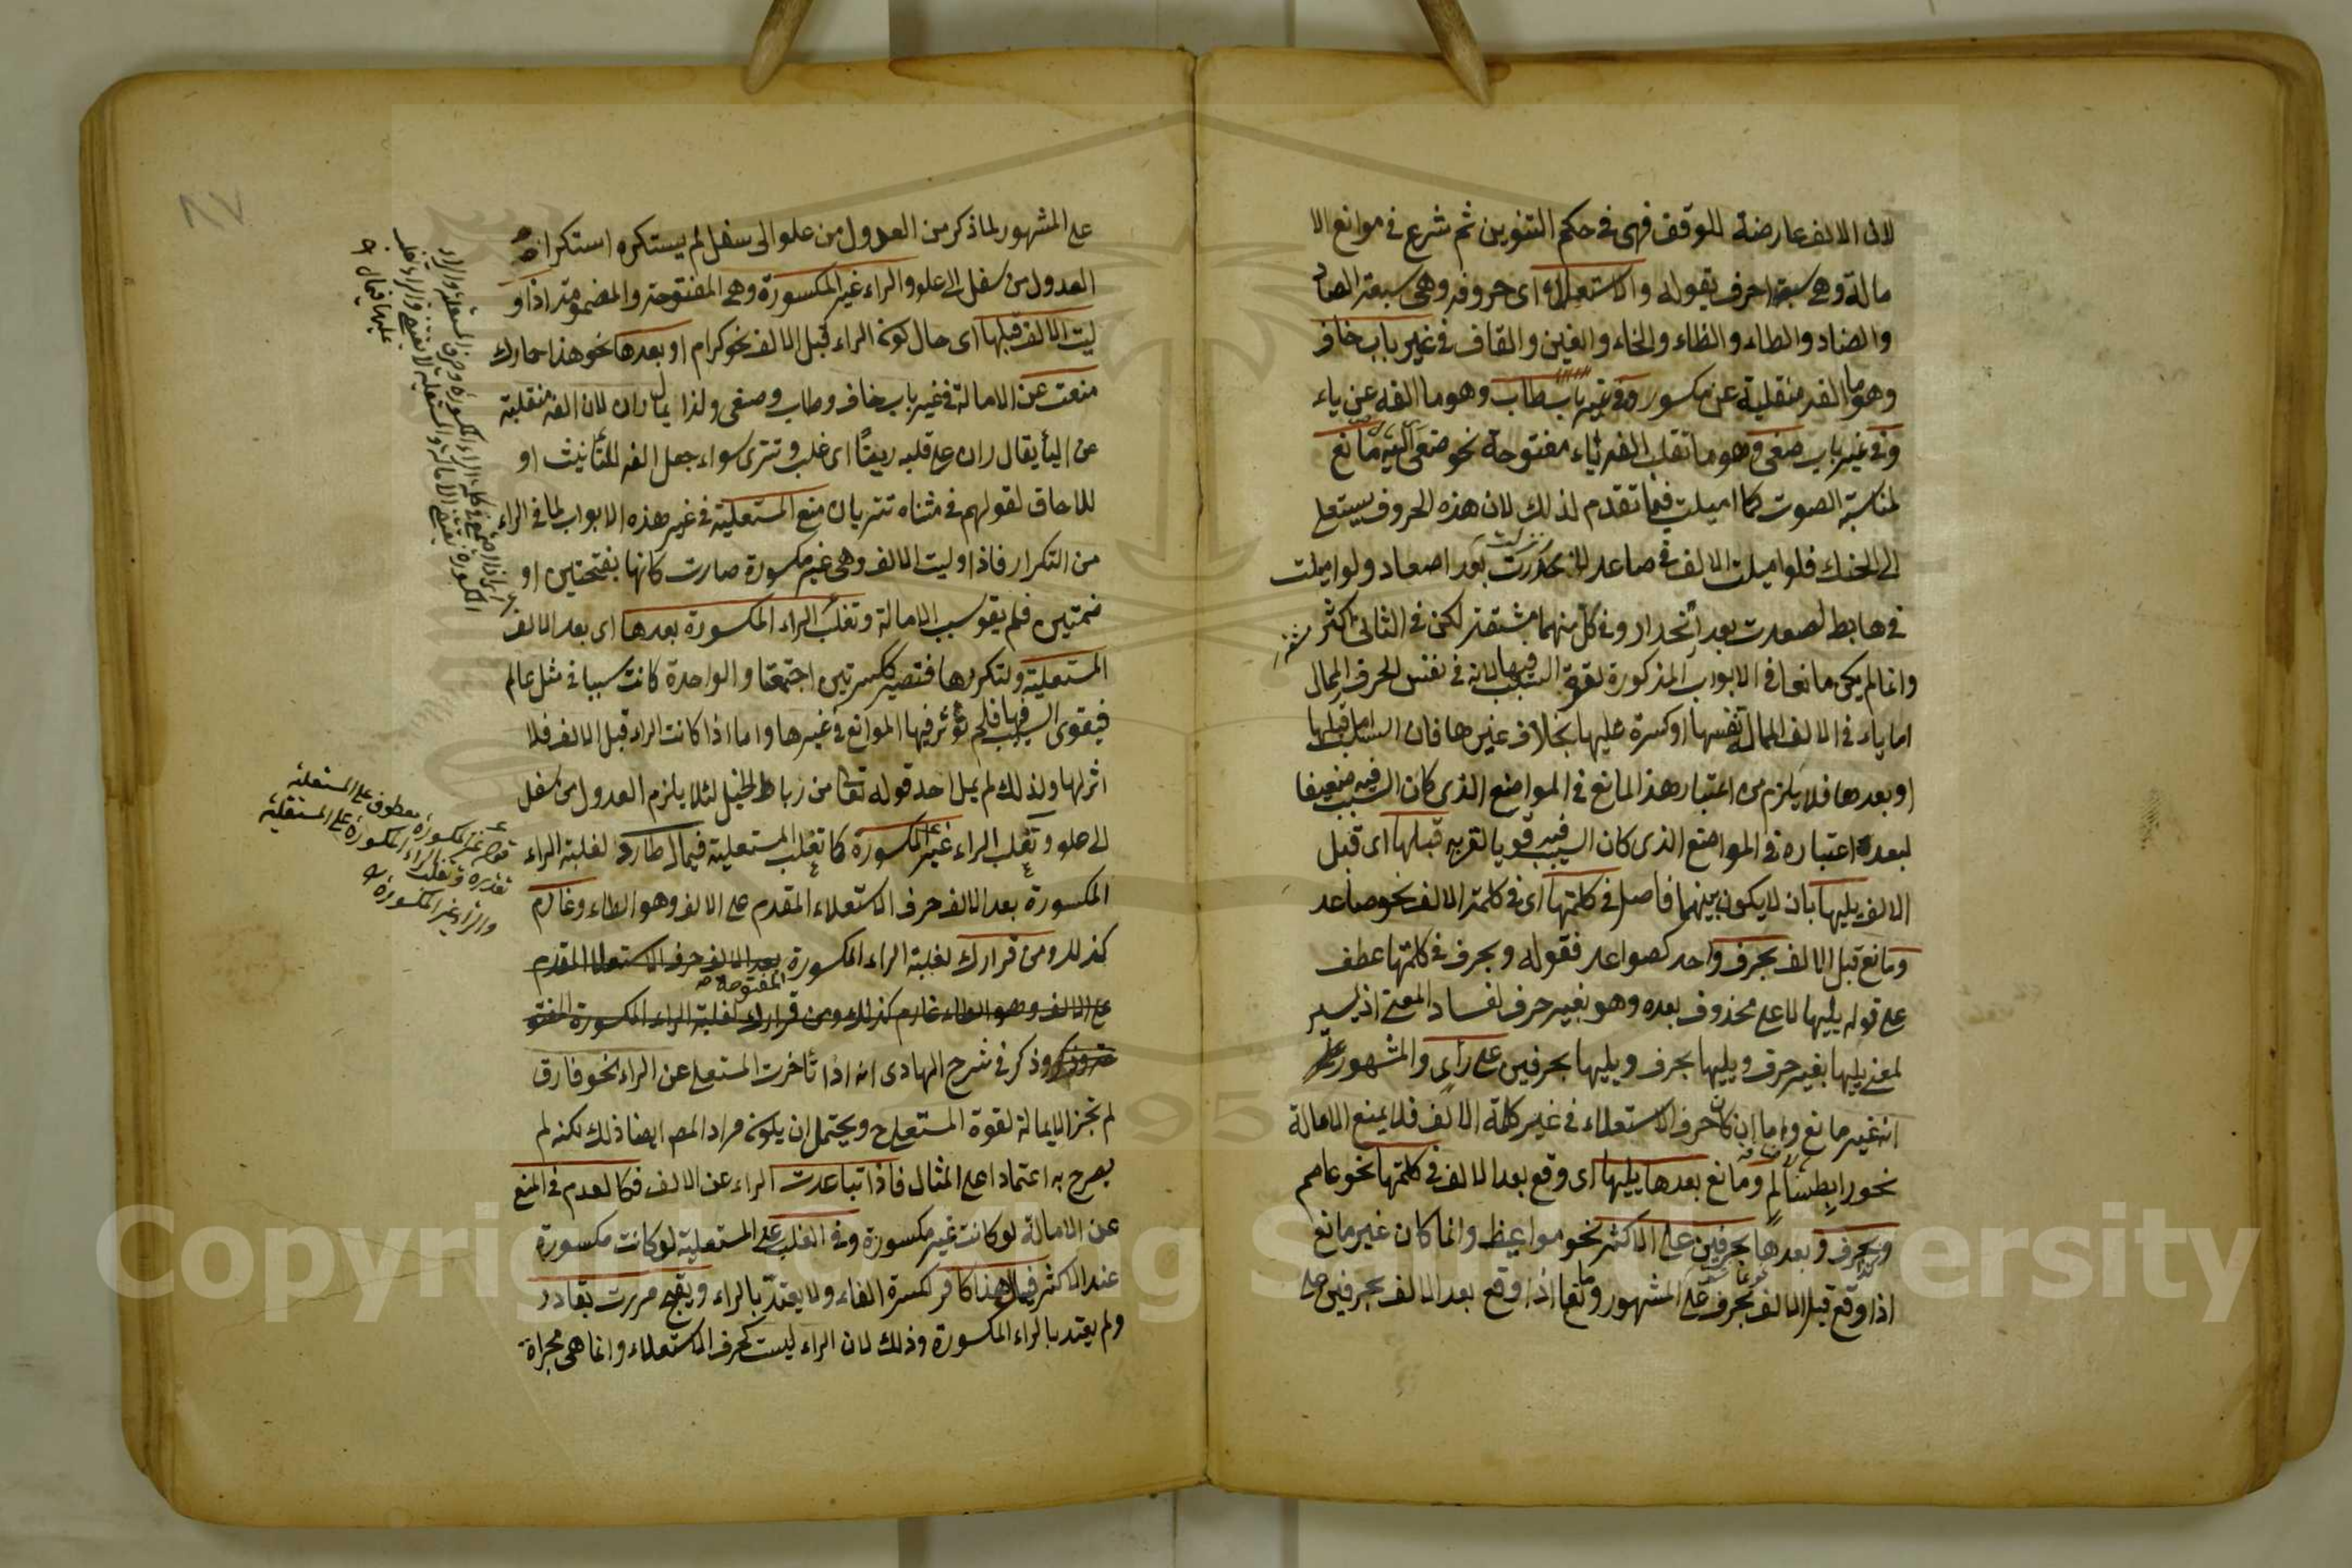 لان الالف عارضة للوقف فهى فى حكم التنوين ثم شرع فى موانع الا
مالة وهى سبعة احرف بقوله والاستعلاء اى حروفه وهى سبعة الصاد
والضاد والطاء والظاء والخاء والغين والقاف فى غير باب خاف
وهو ما الفه منقلبة عن مكسور وفى غير باب طاب وهو ما الفه عن ياء
وفى غير باب صغى وهو ما تقلب الفه ياء مفتوحة نحو صغى مانع
لمناسبة الصوت كما اميلت فيما تقدم لذلك لان هذه الحروف يستعلى
الى الحنك فلو اميلت الالف فى صاعد بعد اصعاد ولو اميلت
فى هابط لصعدت بعد انحدار وفى كل منهما مشقة لكن فى الثانى اكثر
وانما لم يكن مانعا فى الابواب المذكورة لقوة السبب فيها لانه فى نفس الحرف الممال
اما ياء فى الالف الممالة نفسها او كسرة عليها بخلاف غيرها فان السبب اما قبلها
او بعدها فلا يلزم من اعتبار هذا المانع فى المواضع الذى كان السبب فيه ضعيفا
لبعده اعتباره فى المواضع الذى كان السبب فيه قويا لقربه قبلها اى قبل
الالف يليها بان لا يكون بينهما فاصل فى كلمتها اى فى كلمة الالف نحو صاعد
ومانع قبل الالف بحرف واحد كصواعد فقوله وبحرف فى كلمتها عطف
على قوله يليها لا على محذوف بعده وهو بغير حرف لفساد المعنى اذ ليس
لمعنى يليها بغير حرف ويليها بحرف ويليها بحرفين على رأى والمشهور
انه غير مانع واما ان كان حرف الاستعلاء فى غير كلمة الالف فلا يمنع الامالة
نحو رابط سالم ومانع بعدها يليها اى وقع بعد الالف فى كلمتها نحو عاصم
وبحرف وبعدها بحرفين على الاكثر نحو مواعيظ وانما كان غير مانع
اذا وقع قبل الالف بحرف على المشهور ومانعا اذا وقع بعد الالف بحرفين على
٨٧
على المشهور لما ذكر من العدول من علو الى سفل لم يستكره استكراه
العدول من سفل الى علو والراء غير المكسورة وهى المفتوحة والمضمومة اذا و
ليت الالف قبلها اى حال كونه الراء قبل الالف نحو كرام او بعدها نحو هذا حمارك
منعت عن الامالة فى غير باب خاف وطاب وصغى ولذا يمال ران لان الفه منقلبة
عن اليأ يقال ران على قلبه رينًا اى غلب وتترى سواء جعل الفه للتأنيث او
للالحاق لقولهم فى مثناه تتريان منع المستعلية فى غير هذه الابواب لما فى الراء
من التكرار فاذا وليت الالف وهى غير مكسورة صارت كانها بفتحتين او
ضمتين فلم يقو سبب الامالة وتغلب الراء المكسورة بعدها اى بعد الالف
المستعلية ولتكررها فتصير ككسرتين اجتمعتا والواحدة كانت سببا فى مثل عالم
فيقوى السبب فيها فلم تؤثر فيها الموانع فى غيرها واما اذا كانت الراء قبل الالف فلا
اثر لها ولذلك لم يمل احد قوله تعا من رباط الخيل لئلا يلزم العدول من سفل
الى علو وتغلب الراء غير المكسورة كما تغلب المستعلية فيمال طارد لغلبة الراء
المكسورة بعد الالف حرف الاستعلاء المقدم على الالف وهو الطاء وغارم
كذلك ومن قرارك لغلبة الراء المكسورة بعد الالف حرف الاستعلاء المقدم
المفتوحة صح
على الالف وهو الطاء غارم كذلك ومن قرارك لغلبة الراء المكسورة المفتو
وذكر فى شرح الهادى انه اذا تأخرت المستعلى عن الراء نحو فارق
لم تجز الامالة لقوة المستعلى ح ويحتمل ان يكون مراد المص ايضا ذلك لكنه لم
يصرح به اعتمادا على المثال فاذا تباعدت الراء عن الالف فكالعدم فى المنع
عن الامالة لو كانت غير مكسورة وفى الغلب على المستعلية لو كانت مكسورة
عند الاكثر فيمال هذا كافر لكسرة الفاء ولا يعتدّ بالراء ويفتح مررت بقادر
ولم يعتد بالراء المكسورة وذلك لان الراء ليست كحرف الاستعلاء وانما هى مجراة
قوله غير المكسورة معطوف على المستعلية
تقديره وتغلب الراء المكسورة على المستعلية
والراء غير المكسورة